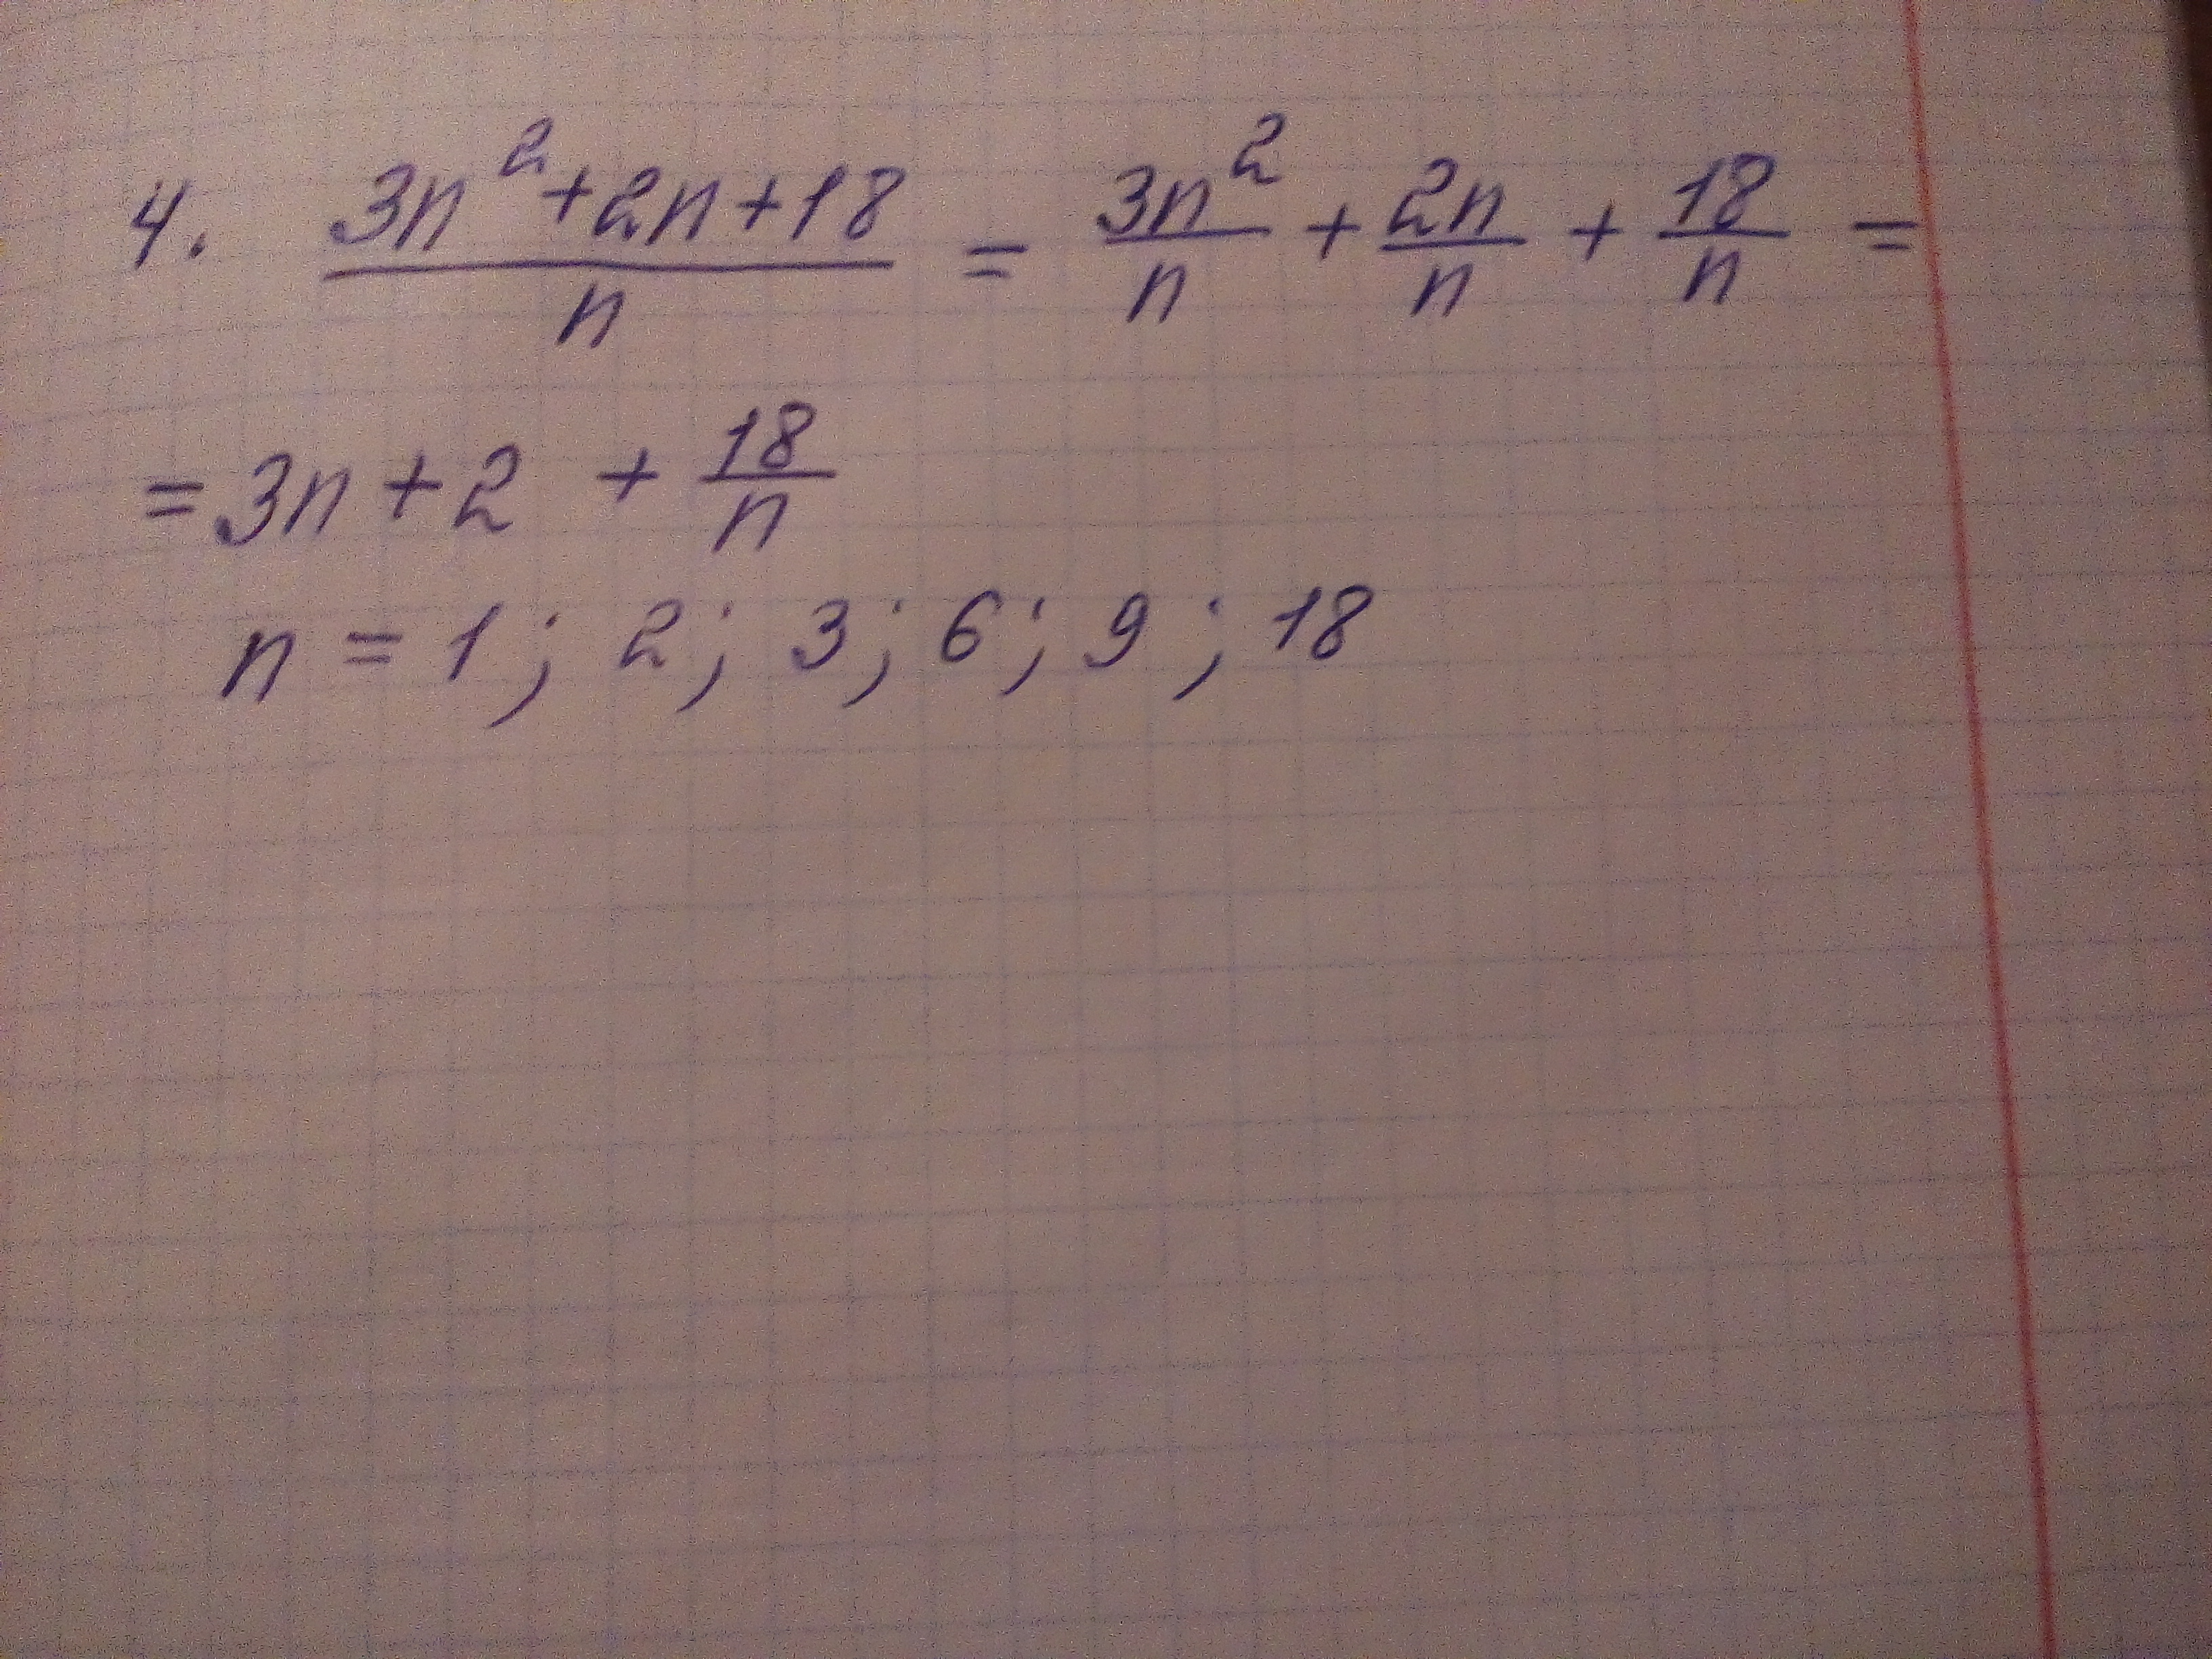 4. (3n²+2n+18)/n = 3n²/n + 2n/n + 18/n =
= 3n + 2 + 18/n
n = 1; 2; 3; 6; 9; 18